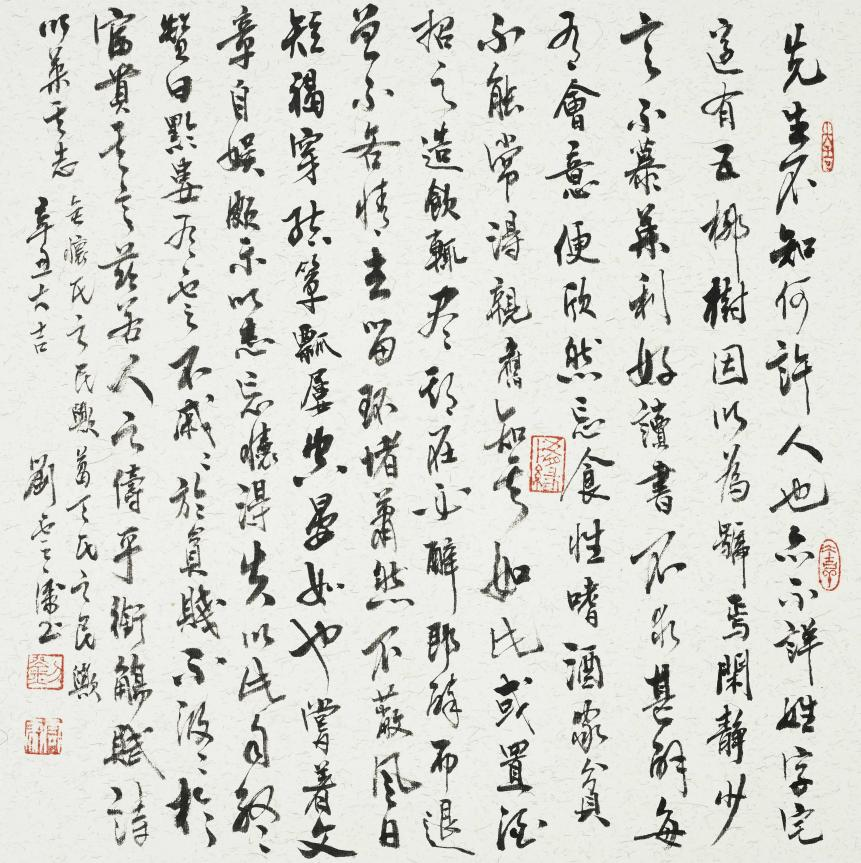 先生不知何許人也亦不詳姓字宅
邊有五柳樹因以為號焉閑靜少
言不慕榮利好讀書不求甚解每
有會意便欣然忘食性嗜酒家貧
不能常得親舊知其如此或置酒
招之造飲輒盡期在必醉既醉而退
曾不吝情去留環堵蕭然不蔽風日
短褐穿結簞瓢屢空晏如也嘗着文
章自娛頗示以志忘懷得失以此自終
贊曰黔婁有云不戚戚於貧賤不汲汲於
富貴其言茲若人之儔乎銜觴賦詩
以樂其志
無懷氏之民歟葛天氏之民歟
辛丑大吉
劉云书